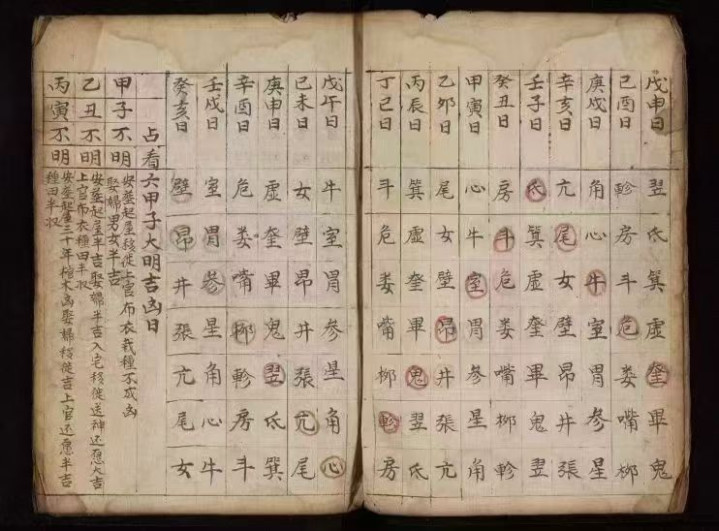 戊申日 翌 氐 箕 虚 奎 畢 鬼
己酉日 軫 房 斗 危 娄 嘴 柳
庚戌日 角 心 牛 室 胃 参 星
辛亥日 亢 尾 女 壁 昂 井 張
壬子日 氐 箕 虚 奎 畢 鬼 翌
癸丑日 房 斗 危 娄 嘴 柳 軫
甲寅日 心 牛 室 胃 参 星 角
乙夘日 尾 女 壁 昂 井 張 亢
丙辰日 箕 虚 奎 畢 鬼 翌 氐
丁巳日 斗 危 娄 嘴 柳 軫 房
戊午日 牛 室 胃 参 星 角 心
己未日 女 壁 昂 井 張 亢 尾
庚申日 虚 奎 畢 鬼 翌 氐 箕
辛酉日 危 娄 嘴 柳 軫 房 斗
壬戌日 室 胃 参 星 角 心 牛
癸亥日 壁 昂 井 張 亢 尾 女
占看六甲子大明吉凶日
甲子不明
安葬起屋移徙上官布衣栽種不成凶
娶婦男女半吉
乙丑不明
安葬起屋半吉娶婦半吉入宅移徙送神还愿大吉
上官布衣種田半収
丙寅不明
安葬起屋三十年木凶娶婦移徙吉上官还愿半吉
種田半収